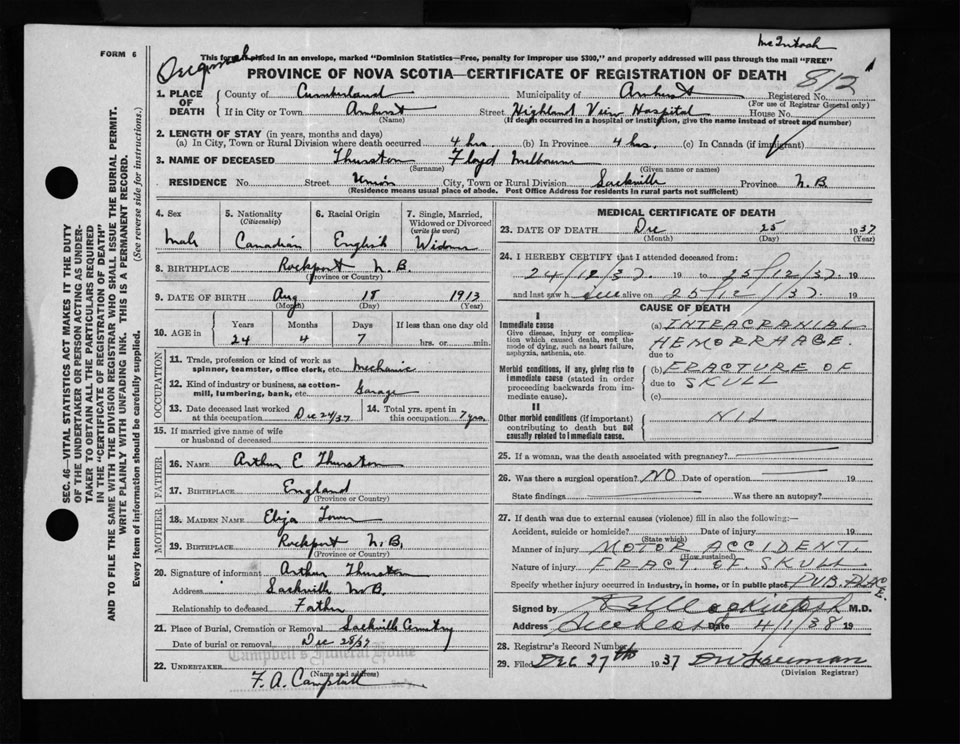 McIntosh
FORM 6
This form, if placed in an envelope, marked "Dominion Statistics—Free, penalty for improper use $300," and properly addressed will pass through the mail "FREE"
PROVINCE OF NOVA SCOTIA—CERTIFICATE OF REGISTRATION OF DEATH
812
1. PLACE OF DEATH
County of Cumberland Municipality of Amherst Registered No.
(For use of Registrar General only)
If in City or Town Amherst Street Highland View Hospital House No.
(Name) (If death occurred in a hospital or institution, give the name instead of street and number)
2. LENGTH OF STAY (in years, months and days)
(a) In City, Town or Rural Division where death occurred 4 hrs. (b) In Province 4 hrs. (c) In Canada (if immigrant)
3. NAME OF DECEASED Thurston Floyd Melbourne
(Surname) (Given name or names)
RESIDENCE No. Street Union City, Town or Rural Division Sackville Province N.B.
(Residence means usual place of abode. Post Office Address for residents in rural parts not sufficient)
4. Sex
Male
5. Nationality (Citizenship)
Canadian
6. Racial Origin
English
7. Single, Married, Widowed or Divorced (write the word)
8. BIRTHPLACE Rockport N.B.
(Province or Country)
9. DATE OF BIRTH Aug 18 1913
(Month) (Day) (Year)
10. AGE in
Years Months Days If less than one day old
24 4 7 hrs. or min.
OCCUPATION
11. Trade, profession or kind of work as spinner, teamster, office clerk, etc. Mechanic
12. Kind of industry or business, as cotton-mill, lumbering, bank, etc. Garage
13. Date deceased last worked at this occupation Dec 24/37
14. Total yrs. spent in this occupation 7 yrs.
15. If married give name of wife or husband of deceased
FATHER
16. NAME Arthur C Thurston
17. BIRTHPLACE England
(Province or Country)
MOTHER
18. MAIDEN NAME Eliza Tower
19. BIRTHPLACE Rockport N.B.
(Province or Country)
20. Signature of informant Arthur Thurston
Address Sackville N.B.
Relationship to deceased Father
21. Place of Burial, Cremation or Removal Sackville Cemetry
Date of burial or removal Dec 28/37
Campbell's Funeral Home
22. UNDERTAKER
(Name and address)
F. A. Campbell
MEDICAL CERTIFICATE OF DEATH
23. DATE OF DEATH Dec 25 1937
(Month) (Day) (Year)
24. I HEREBY CERTIFY that I attended deceased from:
24/12/37. 19 to 25/12/37. 19
and last saw h alive on 25/12/37. 19
CAUSE OF DEATH
I
Immediate cause
Give disease, injury or complication which caused death, not the mode of dying, such as heart failure, asphyxia, asthenia, etc.
(a) INTERCRANIAL
HEMORRHAGE.
due to
Morbid conditions, if any, giving rise to immediate cause (stated in order proceeding backwards from immediate cause).
(b) FRACTURE OF
due to SKULL
(c)
II
Other morbid conditions (if important) contributing to death but not causally related to immediate cause.
NIL
25. If a woman, was the death associated with pregnancy?
26. Was there a surgical operation? NO Date of operation 19
State findings Was there an autopsy?
27. If death was due to external causes (violence) fill in also the following:—
Accident, suicide or homicide? Date of injury 19
(State which)
Manner of injury MOTOR ACCIDENT.
(How sustained)
Nature of injury FRACT OF SKULL
Specify whether injury occurred in industry, in home, or in public place PUB. PLACE.
Signed by M.D.
Address Date 4/1/38 19
28. Registrar's Record Number
29. Filed DEC 27th 1937
(Division Registrar)
SEC. 46—VITAL STATISTICS ACT MAKES IT THE DUTY
OF THE UNDERTAKER OR PERSON ACTING AS UNDER-
TAKER TO OBTAIN ALL THE PARTICULARS REQUIRED
IN THE "CERTIFICATE OF REGISTRATION OF DEATH"
AND TO FILE THE SAME WITH THE DIVISION REGISTRAR WHO SHALL ISSUE THE BURIAL PERMIT.
WRITE PLAINLY WITH UNFADING INK. THIS IS A PERMANENT RECORD.
Every item of information should be carefully supplied. (See reverse side for instructions.)